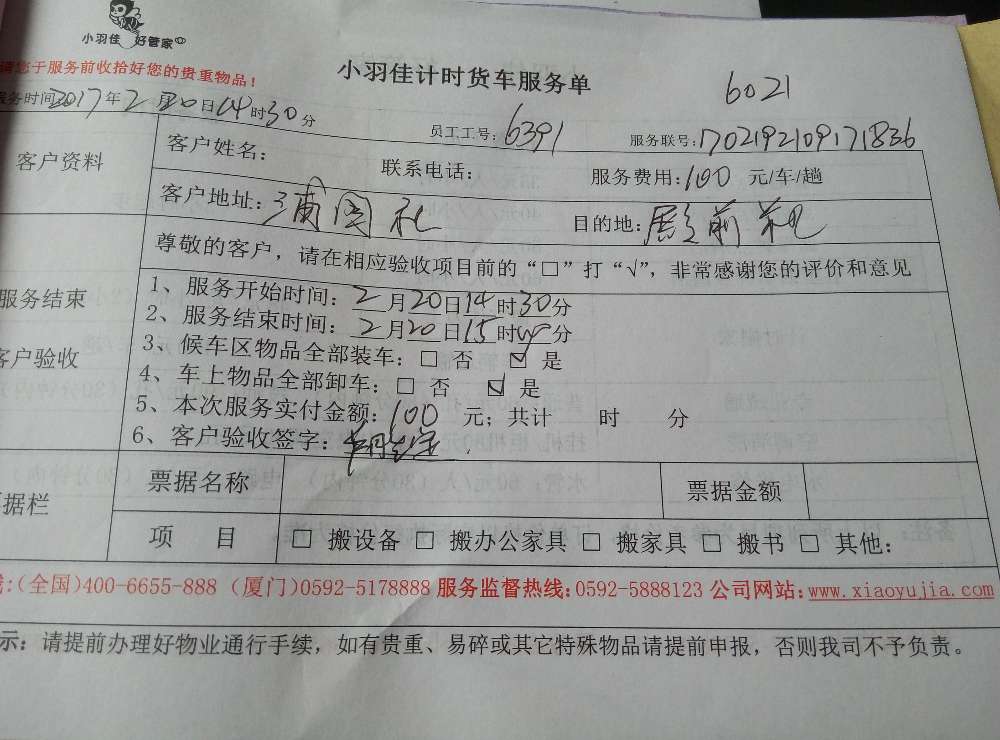 小羽佳 好管家
请您于服务前收拾好您的贵重物品！
小羽佳计时货车服务单
6021
服务时间2017年2月20日14时30分
员工工号：6391
服务联号：1702192109171836
客户资料
客户姓名：
联系电话：
服务费用：100 元/车/趟
客户地址：浦园社
目的地：殿前
尊敬的客户，请在相应验收项目前的“□”打“√”，非常感谢您的评价和意见
服务结束
客户验收
1、服务开始时间：2月20日14时30分
2、服务结束时间：2月20日15时40分
3、候车区物品全部装车：□ 否 ☑ 是
4、车上物品全部卸车：□ 否 ☑ 是
5、本次服务实付金额：100 元；共计 时 分
6、客户验收签字：
票据栏
票据名称
票据金额
项 目
□ 搬设备 □ 搬办公家具 □ 搬家具 □ 搬书 □ 其他：
：(全国)400-6655-888 (厦门)0592-5178888 服务监督热线：0592-5888123 公司网站：www.xiaoyujia.com
示：请提前办理好物业通行手续，如有贵重、易碎或其它特殊物品请提前申报，否则我司不予负责。